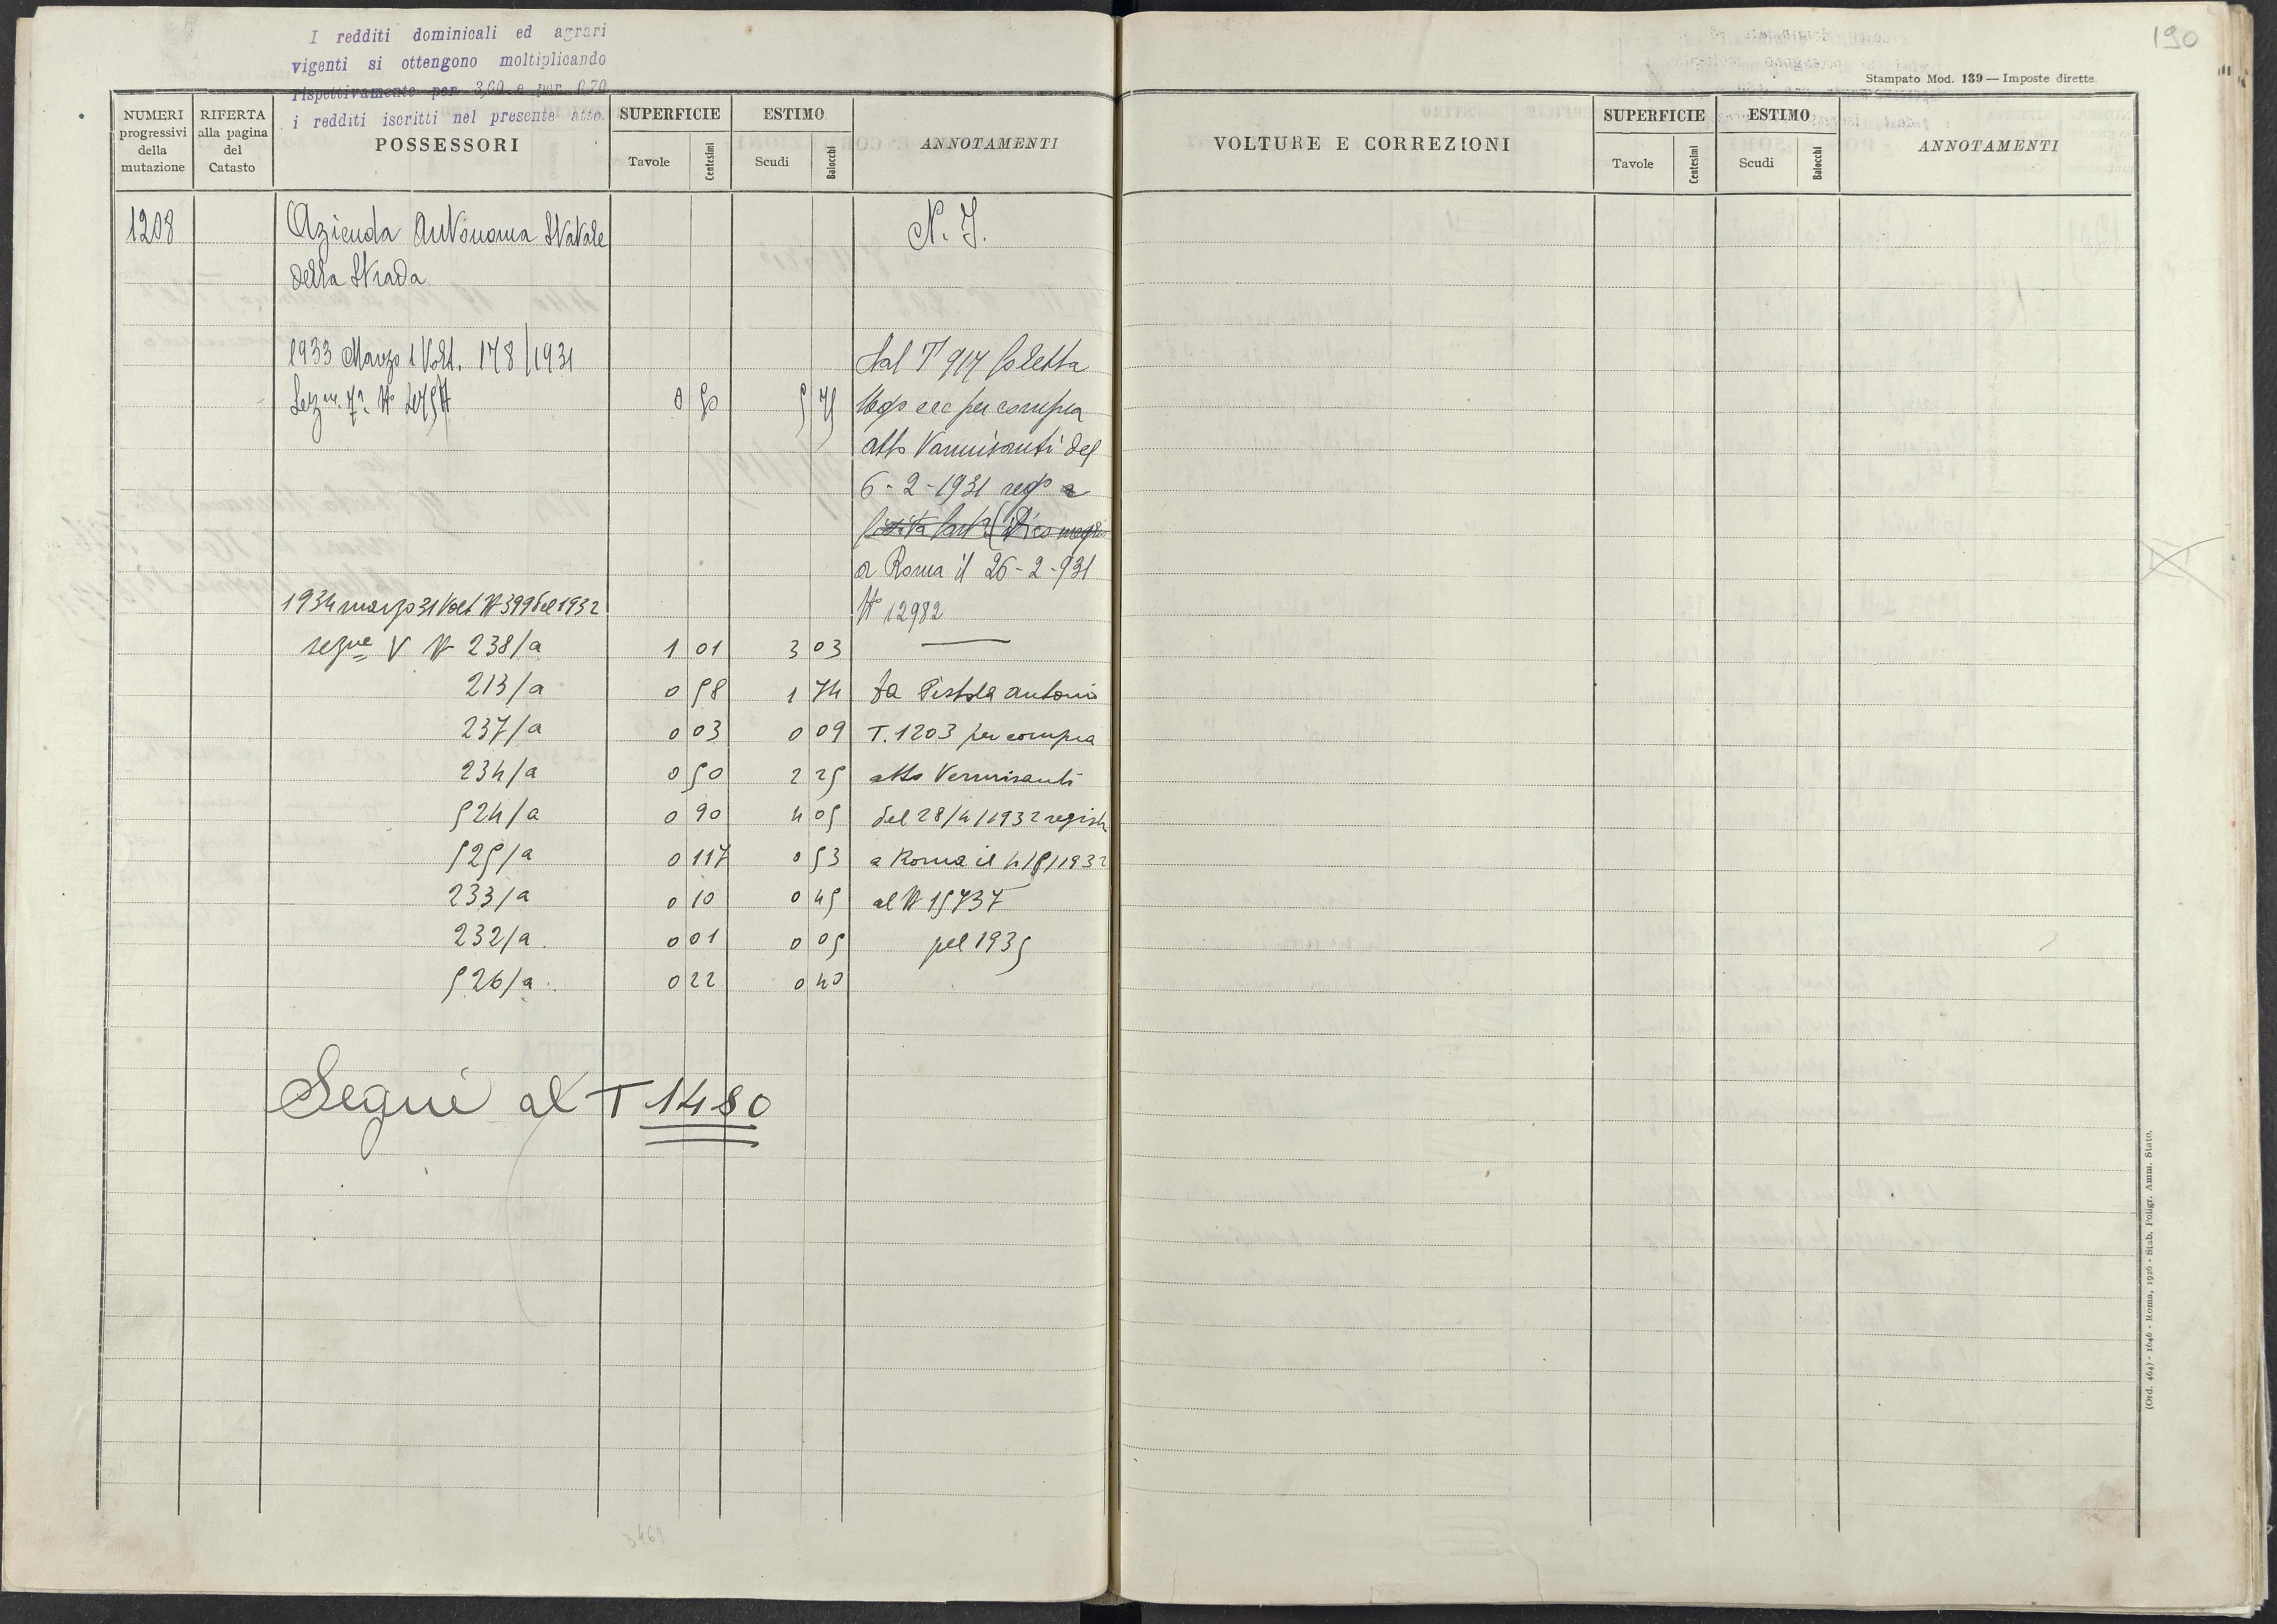 I redditi dominicali ed agrari
vigenti si ottengono moltiplicando
rispettivamente per 3,60 e per 6,70
i redditi iscritti nel presente atto.
NUMERI progressivi della mutazione
RIFERTA alla pagina del Catasto
POSSESSORI
SUPERFICIE
Tavole Centesimi
ESTIMO
Scudi Baiocchi
ANNOTAMENTI
1208 Azienda Autonoma Statale N. I.
della Strada
1933 Marzo 1 Volt. 178/1931 dal T 917 Coletta
Sezne 7ª N° 0 50 5 75 per compra
atto Vannisanti del
6-2-1931 rego a
a Roma il 26-2-931
1934 marzo 31 Volt N 399 del 1932 N° 12982
sezne V N 238/a 1 01 3 03
213/a 0 58 1 74 da Pistola Antonio
237/a 0 03 0 09 T. 1203 per compra
234/a 0 50 2 25 atto Vannisanti
524/a 0 90 4 05 del 28/4/1932 registr
525/a 0 117 0 53 a Roma il 4/5/1932
233/a 0 10 0 45 al N 15737
232/a. 0 01 0 05 pel 1935
526/a. 0 22 0 40
Segue al T 1480
3461
190
Stampato Mod. 139 — Imposte dirette.
VOLTURE E CORREZIONI
SUPERFICIE
Tavole Centesimi
ESTIMO
Scudi Baiocchi
ANNOTAMENTI
(Ord. 464) - 1646 - Roma, 1926 - Stab. Poligr. Amm. Stato.